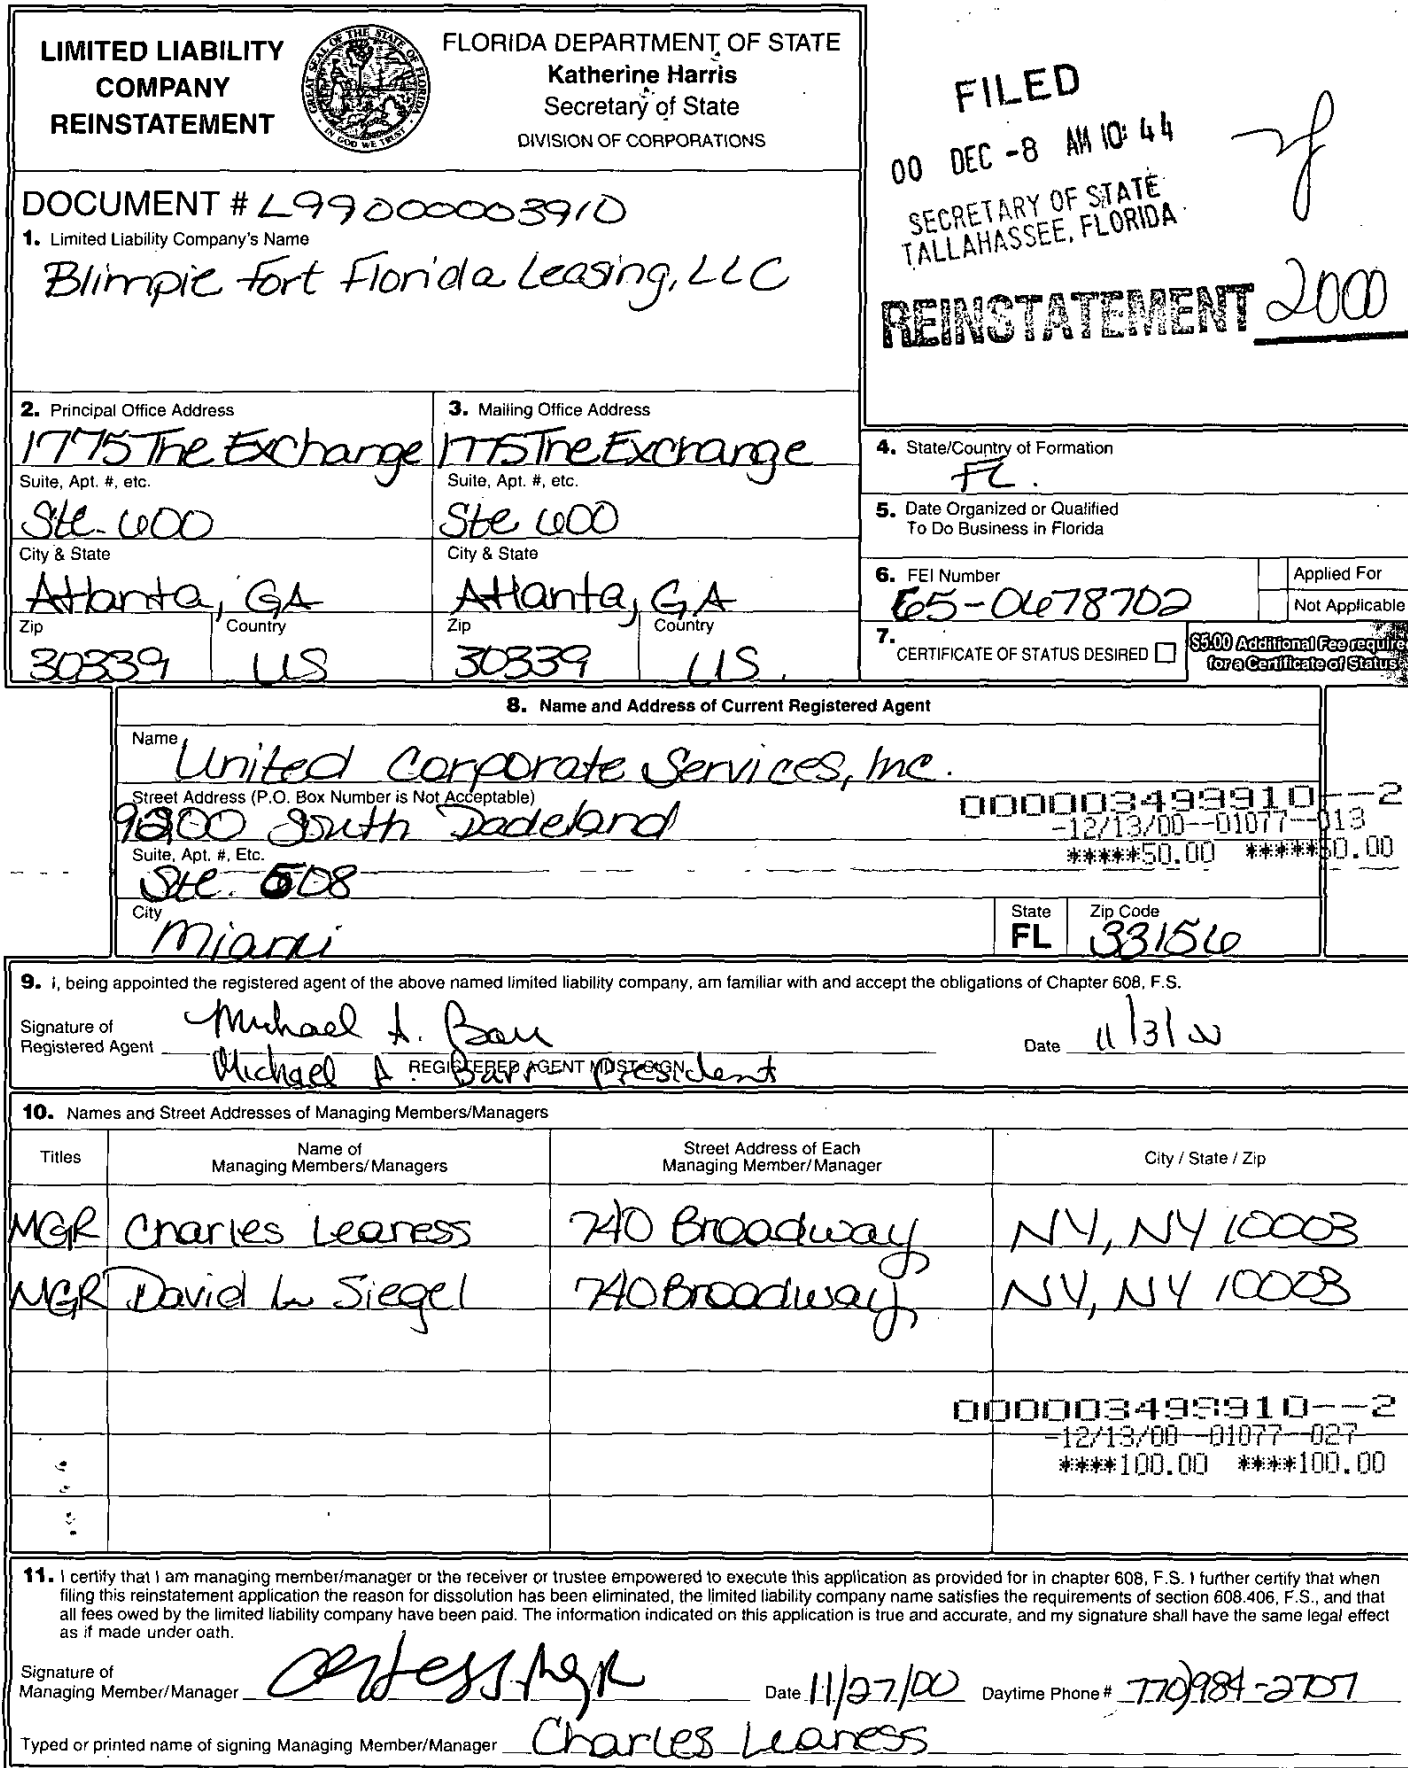 LIMITED LIABILITY
COMPANY
REINSTATEMENT
GREAT SEAL OF THE STATE OF FLORIDA
IN GOD WE TRUST
FLORIDA DEPARTMENT OF STATE
Katherine Harris
Secretary of State
DIVISION OF CORPORATIONS
FILED
00 DEC -8 AM 10:44
SECRETARY OF STATE
TALLAHASSEE, FLORIDA
REINSTATEMENT 2000
DOCUMENT # L99000003910
1. Limited Liability Company's Name
Blimpie Fort Florida Leasing, LLC
2. Principal Office Address
3. Mailing Office Address
1775 The Exchange
1775 The Exchange
Suite, Apt. #, etc.
Suite, Apt. #, etc.
Ste. 600
Ste 600
City & State
City & State
Atlanta, GA
Atlanta, GA
Zip
Country
Zip
Country
30339
US
30339
US.
4. State/Country of Formation
FL.
5. Date Organized or Qualified
To Do Business in Florida
6. FEI Number
65-0678702
Applied For
Not Applicable
7.
CERTIFICATE OF STATUS DESIRED
$5.00 Additional Fee require
for a Certificate of Status
8. Name and Address of Current Registered Agent
Name
United Corporate Services, Inc.
Street Address (P.O. Box Number is Not Acceptable)
9200 South Dadeland
000003499910--2
-12/13/00--01077--013
*****50.00 *****50.00
Suite, Apt. #, Etc.
Ste. 508
City
Miami
State
FL
Zip Code
33156
9. I, being appointed the registered agent of the above named limited liability company, am familiar with and accept the obligations of Chapter 608, F.S.
Signature of
Registered Agent
Michael A. Barr
Date 11/3/00
REGISTERED AGENT MUST SIGN
Michael A. Barr President
10. Names and Street Addresses of Managing Members/Managers
Titles
Name of
Managing Members/Managers
Street Address of Each
Managing Member/Manager
City / State / Zip
MGR Charles Leaness 740 Broadway NY, NY 10003
MGR David L. Siegel 740 Broadway NY, NY 10003
000003499910--2
-12/13/00--01077--027
****100.00 ****100.00
11. I certify that I am managing member/manager or the receiver or trustee empowered to execute this application as provided for in chapter 608, F.S. I further certify that when
filing this reinstatement application the reason for dissolution has been eliminated, the limited liability company name satisfies the requirements of section 608.406, F.S., and that
all fees owed by the limited liability company have been paid. The information indicated on this application is true and accurate, and my signature shall have the same legal effect
as if made under oath.
Signature of
Managing Member/Manager
Mgr
Date 11/27/00 Daytime Phone # 770)984-2707
Typed or printed name of signing Managing Member/Manager Charles Leaness